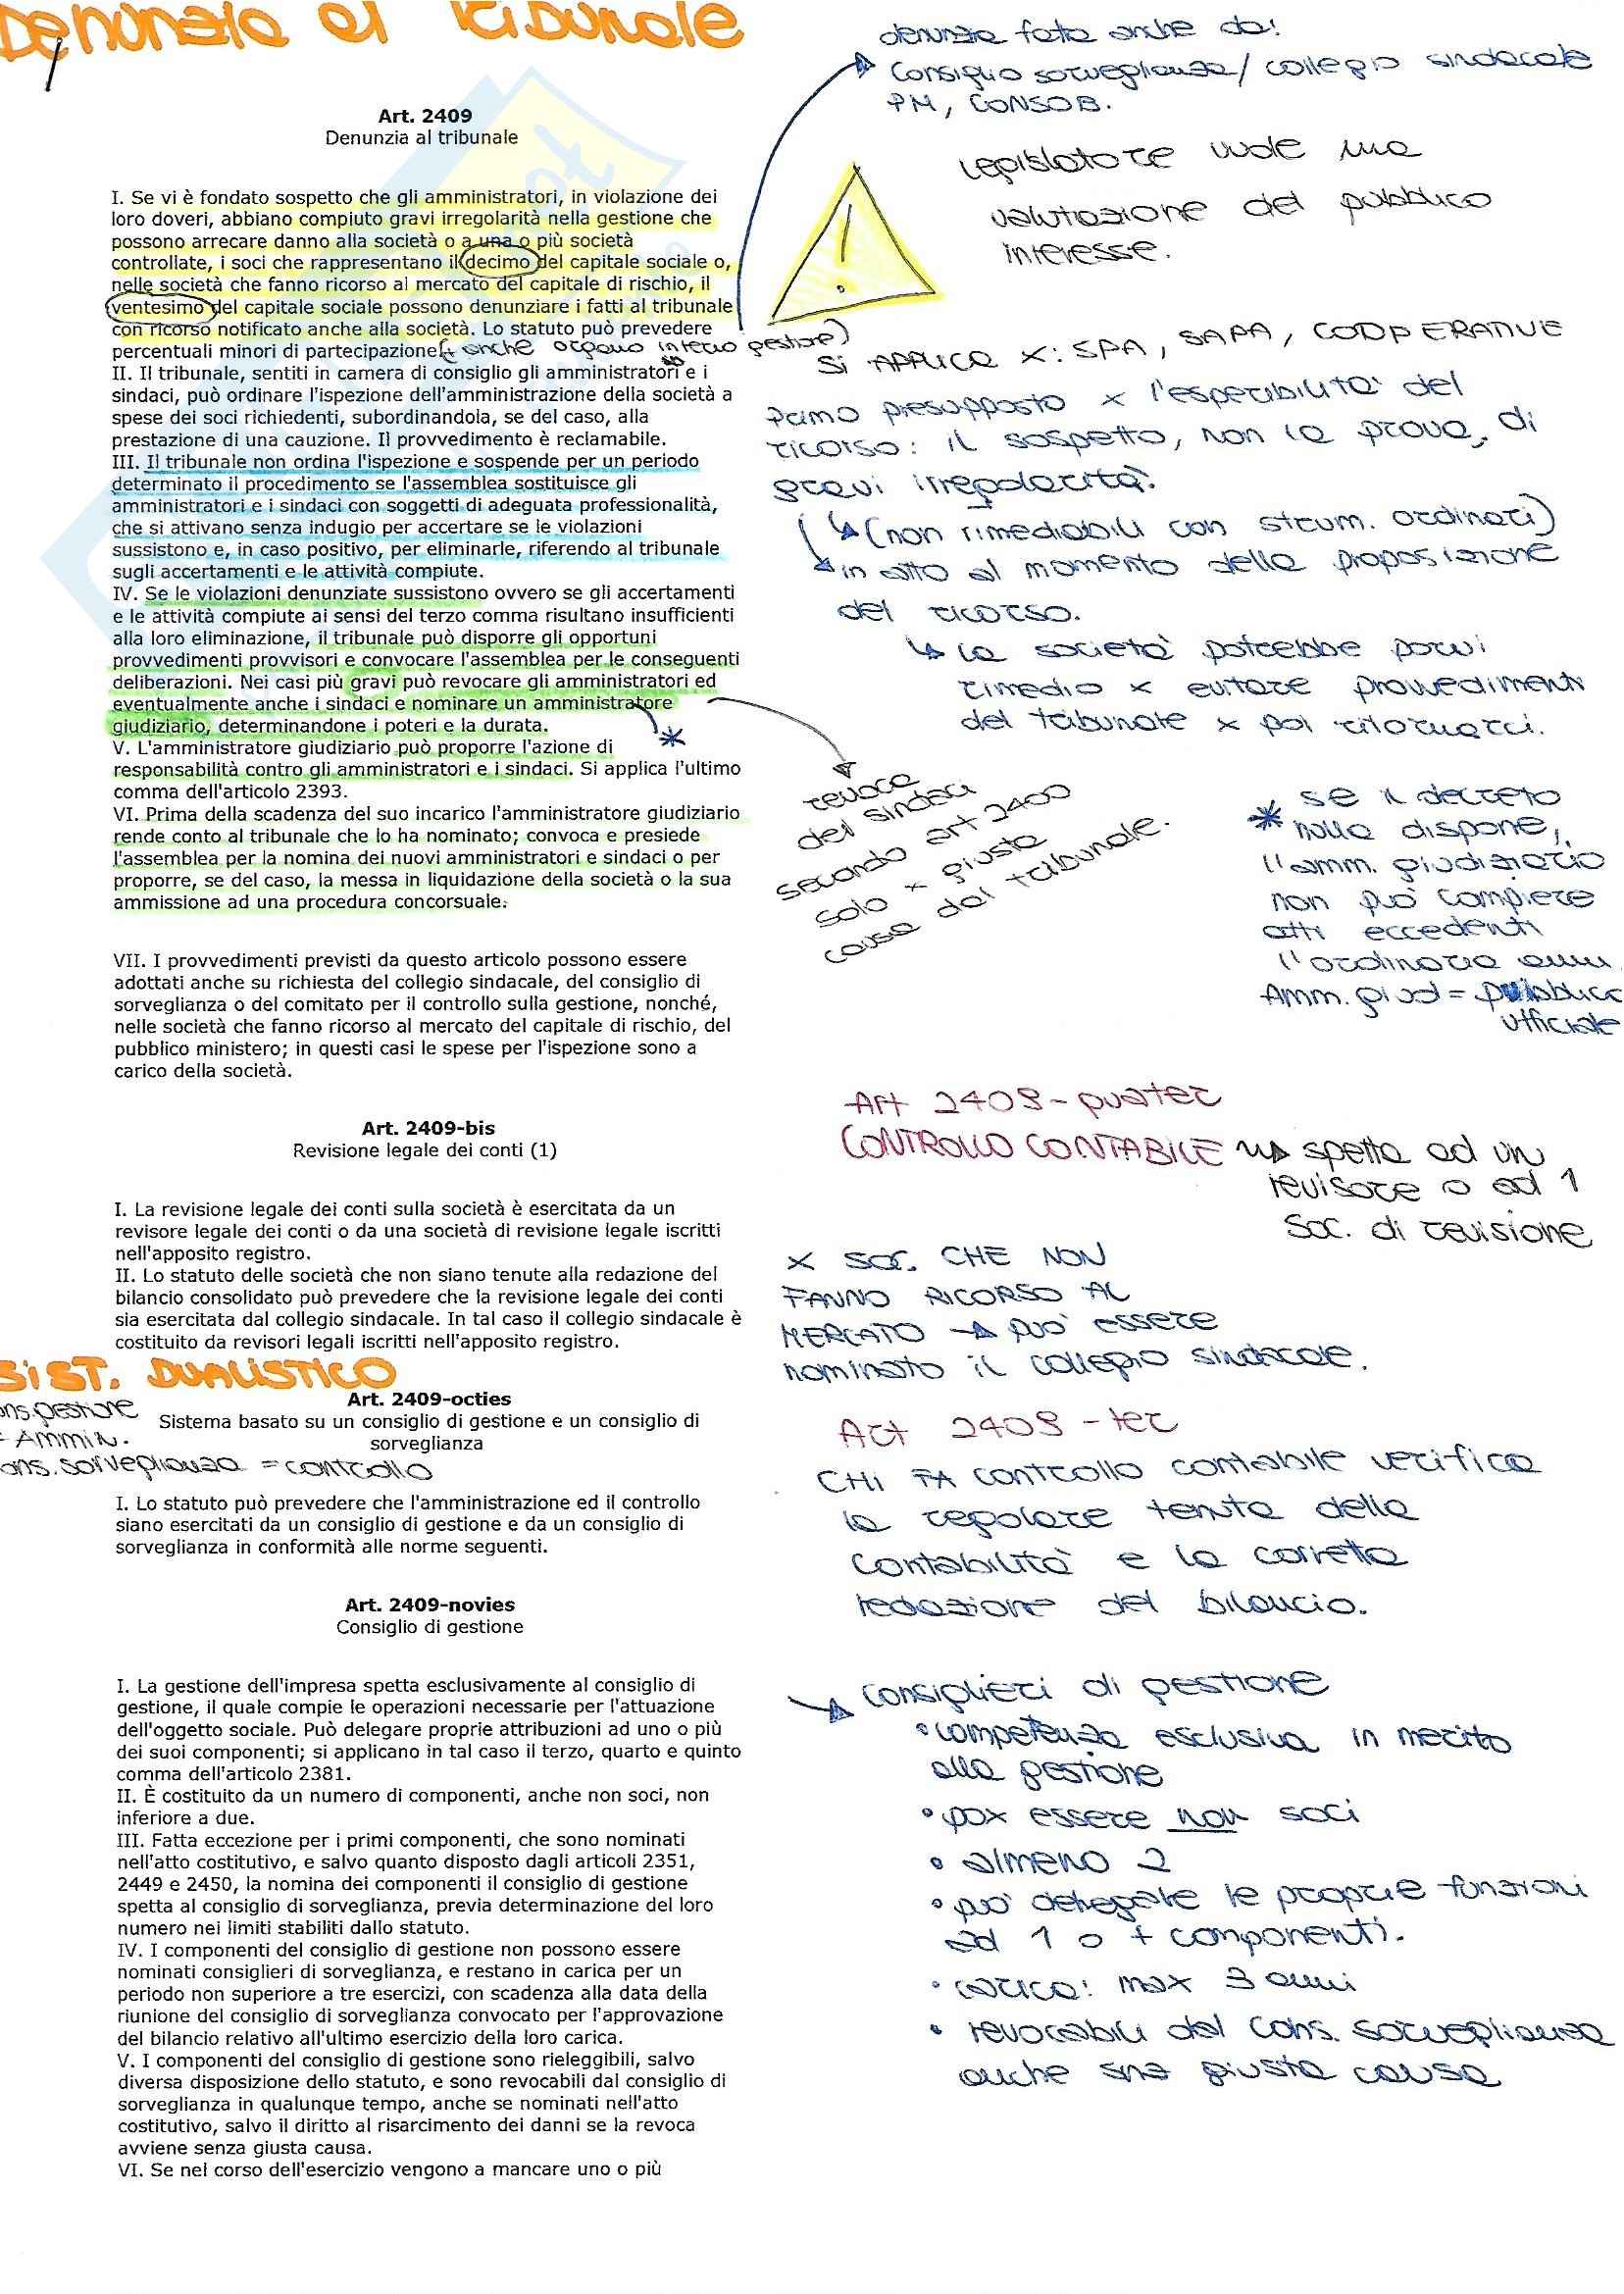 Denunzia al tribunale
denunzia fatta anche da:
Consiglio sorveglianza / collegio sindacale
PM, CONSOB.
Art. 2409
Denunzia al tribunale
legislatore vuole una
valutazione del pubblico
interesse.
I. Se vi è fondato sospetto che gli amministratori, in violazione dei
loro doveri, abbiano compiuto gravi irregolarità nella gestione che
possono arrecare danno alla società o a una o più società
controllate, i soci che rappresentano il decimo del capitale sociale o,
nelle società che fanno ricorso al mercato del capitale di rischio, il
ventesimo del capitale sociale possono denunziare i fatti al tribunale
con ricorso notificato anche alla società. Lo statuto può prevedere
percentuali minori di partecipazione.
(+ anche organo intero gestore)
II. Il tribunale, sentiti in camera di consiglio gli amministratori e i
sindaci, può ordinare l'ispezione dell'amministrazione della società a
spese dei soci richiedenti, subordinandola, se del caso, alla
prestazione di una cauzione. Il provvedimento è reclamabile.
III. Il tribunale non ordina l'ispezione e sospende per un periodo
determinato il procedimento se l'assemblea sostituisce gli
amministratori e i sindaci con soggetti di adeguata professionalità,
che si attivano senza indugio per accertare se le violazioni
sussistono e, in caso positivo, per eliminarle, riferendo al tribunale
sugli accertamenti e le attività compiute.
IV. Se le violazioni denunziate sussistono ovvero se gli accertamenti
e le attività compiute ai sensi del terzo comma risultano insufficienti
alla loro eliminazione, il tribunale può disporre gli opportuni
provvedimenti provvisori e convocare l'assemblea per le conseguenti
deliberazioni. Nei casi più gravi può revocare gli amministratori ed
eventualmente anche i sindaci e nominare un amministratore
giudiziario, determinandone i poteri e la durata.
V. L'amministratore giudiziario può proporre l'azione di
responsabilità contro gli amministratori e i sindaci. Si applica l'ultimo
comma dell'articolo 2393.
VI. Prima della scadenza del suo incarico l'amministratore giudiziario
rende conto al tribunale che lo ha nominato; convoca e presiede
l'assemblea per la nomina dei nuovi amministratori e sindaci o per
proporre, se del caso, la messa in liquidazione della società o la sua
ammissione ad una procedura concorsuale.
VII. I provvedimenti previsti da questo articolo possono essere
adottati anche su richiesta del collegio sindacale, del consiglio di
sorveglianza o del comitato per il controllo sulla gestione, nonché,
nelle società che fanno ricorso al mercato del capitale di rischio, del
pubblico ministero; in questi casi le spese per l'ispezione sono a
carico della società.
Si APPLICA x: SPA, SAPA, COOPERATIVE
Primo presupposto x l'esperibilità del
ricorso: il sospetto, non la prova, di
gravi irregolarità
(non rimediabili con strum. ordinari)
in atto al momento della proposizione
del ricorso.
la società potrebbe porvi
rimedio x evitare provvedimenti
del tribunale x poi ritornarci.
revoca
dei sindaci
secondo art 2400
solo x giusta
causa dal tribunale.
* se il decreto
nulla dispone,
l'amm. giudiziario
non può compiere
atti eccedenti
l'ordinaria amm.
Amm. giud = pubblico
ufficiale
Art. 2409-bis
Revisione legale dei conti (1)
I. La revisione legale dei conti sulla società è esercitata da un
revisore legale dei conti o da una società di revisione legale iscritti
nell'apposito registro.
II. Lo statuto delle società che non siano tenute alla redazione del
bilancio consolidato può prevedere che la revisione legale dei conti
sia esercitata dal collegio sindacale. In tal caso il collegio sindacale è
costituito da revisori legali iscritti nell'apposito registro.
Art 2409-quater
CONTROLLO CONTABILE spetta ad un
revisore o ad 1
Soc. di revisione
x SOC. CHE NON
FANNO RICORSO AL
MERCATO → può essere
nominato il collegio sindacale.
SIST. DUALISTICO
Art. 2409-octies
Sistema basato su un consiglio di gestione e un consiglio di
sorveglianza
ons.gestione
= AMMIN.
ons.sorveglianza = controllo
I. Lo statuto può prevedere che l'amministrazione ed il controllo
siano esercitati da un consiglio di gestione e da un consiglio di
sorveglianza in conformità alle norme seguenti.
Art 2409-ter
CHI FA controllo contabile verifica
la regolare tenuta della
contabilità e la corretta
redazione del bilancio.
Art. 2409-novies
Consiglio di gestione
I. La gestione dell'impresa spetta esclusivamente al consiglio di
gestione, il quale compie le operazioni necessarie per l'attuazione
dell'oggetto sociale. Può delegare proprie attribuzioni ad uno o più
dei suoi componenti; si applicano in tal caso il terzo, quarto e quinto
comma dell'articolo 2381.
II. È costituito da un numero di componenti, anche non soci, non
inferiore a due.
III. Fatta eccezione per i primi componenti, che sono nominati
nell'atto costitutivo, e salvo quanto disposto dagli articoli 2351,
2449 e 2450, la nomina dei componenti il consiglio di gestione
spetta al consiglio di sorveglianza, previa determinazione del loro
numero nei limiti stabiliti dallo statuto.
IV. I componenti del consiglio di gestione non possono essere
nominati consiglieri di sorveglianza, e restano in carica per un
periodo non superiore a tre esercizi, con scadenza alla data della
riunione del consiglio di sorveglianza convocato per l'approvazione
del bilancio relativo all'ultimo esercizio della loro carica.
V. I componenti del consiglio di gestione sono rieleggibili, salvo
diversa disposizione dello statuto, e sono revocabili dal consiglio di
sorveglianza in qualunque tempo, anche se nominati nell'atto
costitutivo, salvo il diritto al risarcimento dei danni se la revoca
avviene senza giusta causa.
VI. Se nel corso dell'esercizio vengono a mancare uno o più
Consiglieri di gestione
• competenza esclusiva in merito
alla gestione
• pox essere non soci
• almeno 2
• può delegare le proprie funzioni
ad 1 o + componenti.
• carica: max 3 anni
• revocabili dal cons. sorveglianza
anche snz giusta causa